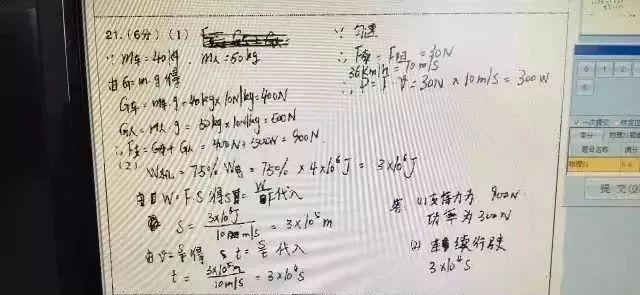 21.(6分)(1)
∵ m车=40kg, m人=50kg
由G=mg得
G车=m车g=40kg×10N/kg=400N
G人=m人g=50kg×10N/kg=500N
∴F支=G车+G人=400N+500N=900N.
(2)
W机=75%W电=75%×4×10⁶J=3×10⁶J
由W=F·S得S=代入
S=3×10⁶J/=3×10⁵m
由v=s/t得 t=s/v代入
t=3×10⁵m/10m/s=3×10⁴s
∵匀速
∴F牵=F阻=30N
36km/h=10m/s
∴P=F·v=30N×10m/s=300W
答:(1)支持力为900N
功率为300W
(2)续行驶
3×10⁴s
0 1 2
一次提交
题目名称 满分
物理21
提交